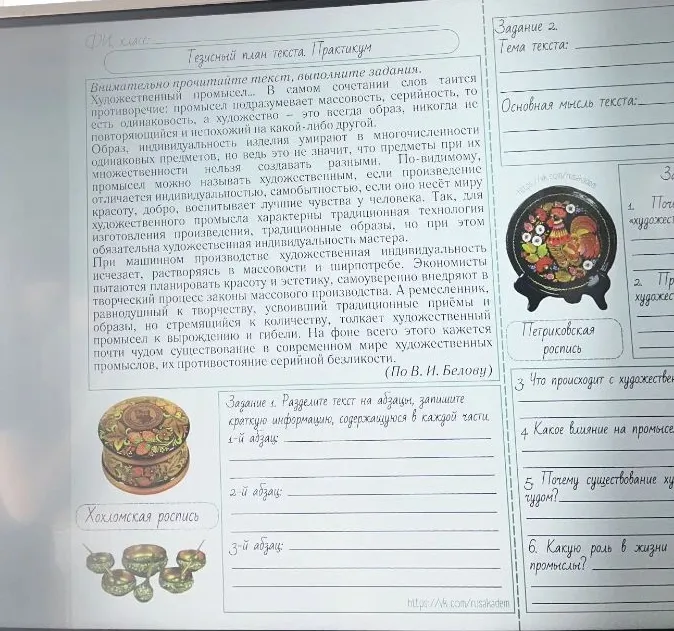 ФИ, класс:
Тезисный план текста. Практикум
Внимательно прочитайте текст, выполните задания.
Художественный промысел... В самом сочетании слов таится
противоречие: промысел подразумевает массовость, серийность, то
есть одинаковость, а художество – это всегда образ, никогда не
повторяющийся и непохожий на какой-либо другой.
Образ, индивидуальность изделия умирают в многочисленности
одинаковых предметов, но ведь это не значит, что предметы при их
множественности нельзя создавать разными. По-видимому,
промысел можно называть художественным, если произведение
отличается индивидуальностью, самобытностью, если оно несёт миру
красоту, добро, воспитывает лучшие чувства у человека. Так, для
художественного промысла характерны традиционная технология
изготовления произведения, традиционные образы, но при этом
обязательна художественная индивидуальность мастера.
При машинном производстве художественная индивидуальность
исчезает, растворяясь в массовости и ширпотребе. Экономисты
пытаются планировать красоту и эстетику, самоуверенно внедряют в
творческий процесс законы массового производства. А ремесленник,
равнодушный к творчеству, усвоивший традиционные приёмы и
образы, но стремящийся к количеству, толкает художественный
промысел к вырождению и гибели. На фоне всего этого кажется
почти чудом существование в современном мире художественных
промыслов, их противостояние серийной безликости.
(По В. И. Белову)
Хохломская роспись
Задание 1. Разделите текст на абзацы, запишите
краткую информацию, содержащуюся в каждой части.
1-й абзац:
2-й абзац:
3-й абзац:
https://vk.com/rusakadem
Задание 2.
Тема текста:
Основная мысль текста:
Петриковская
роспись
За
1. Поче
«художест
2. Пр
художес
3. Что происходит с художествен
4. Какое влияние на промысе
5. Почему существование ху
чудом?
6. Какую роль в жизни
промыслы?